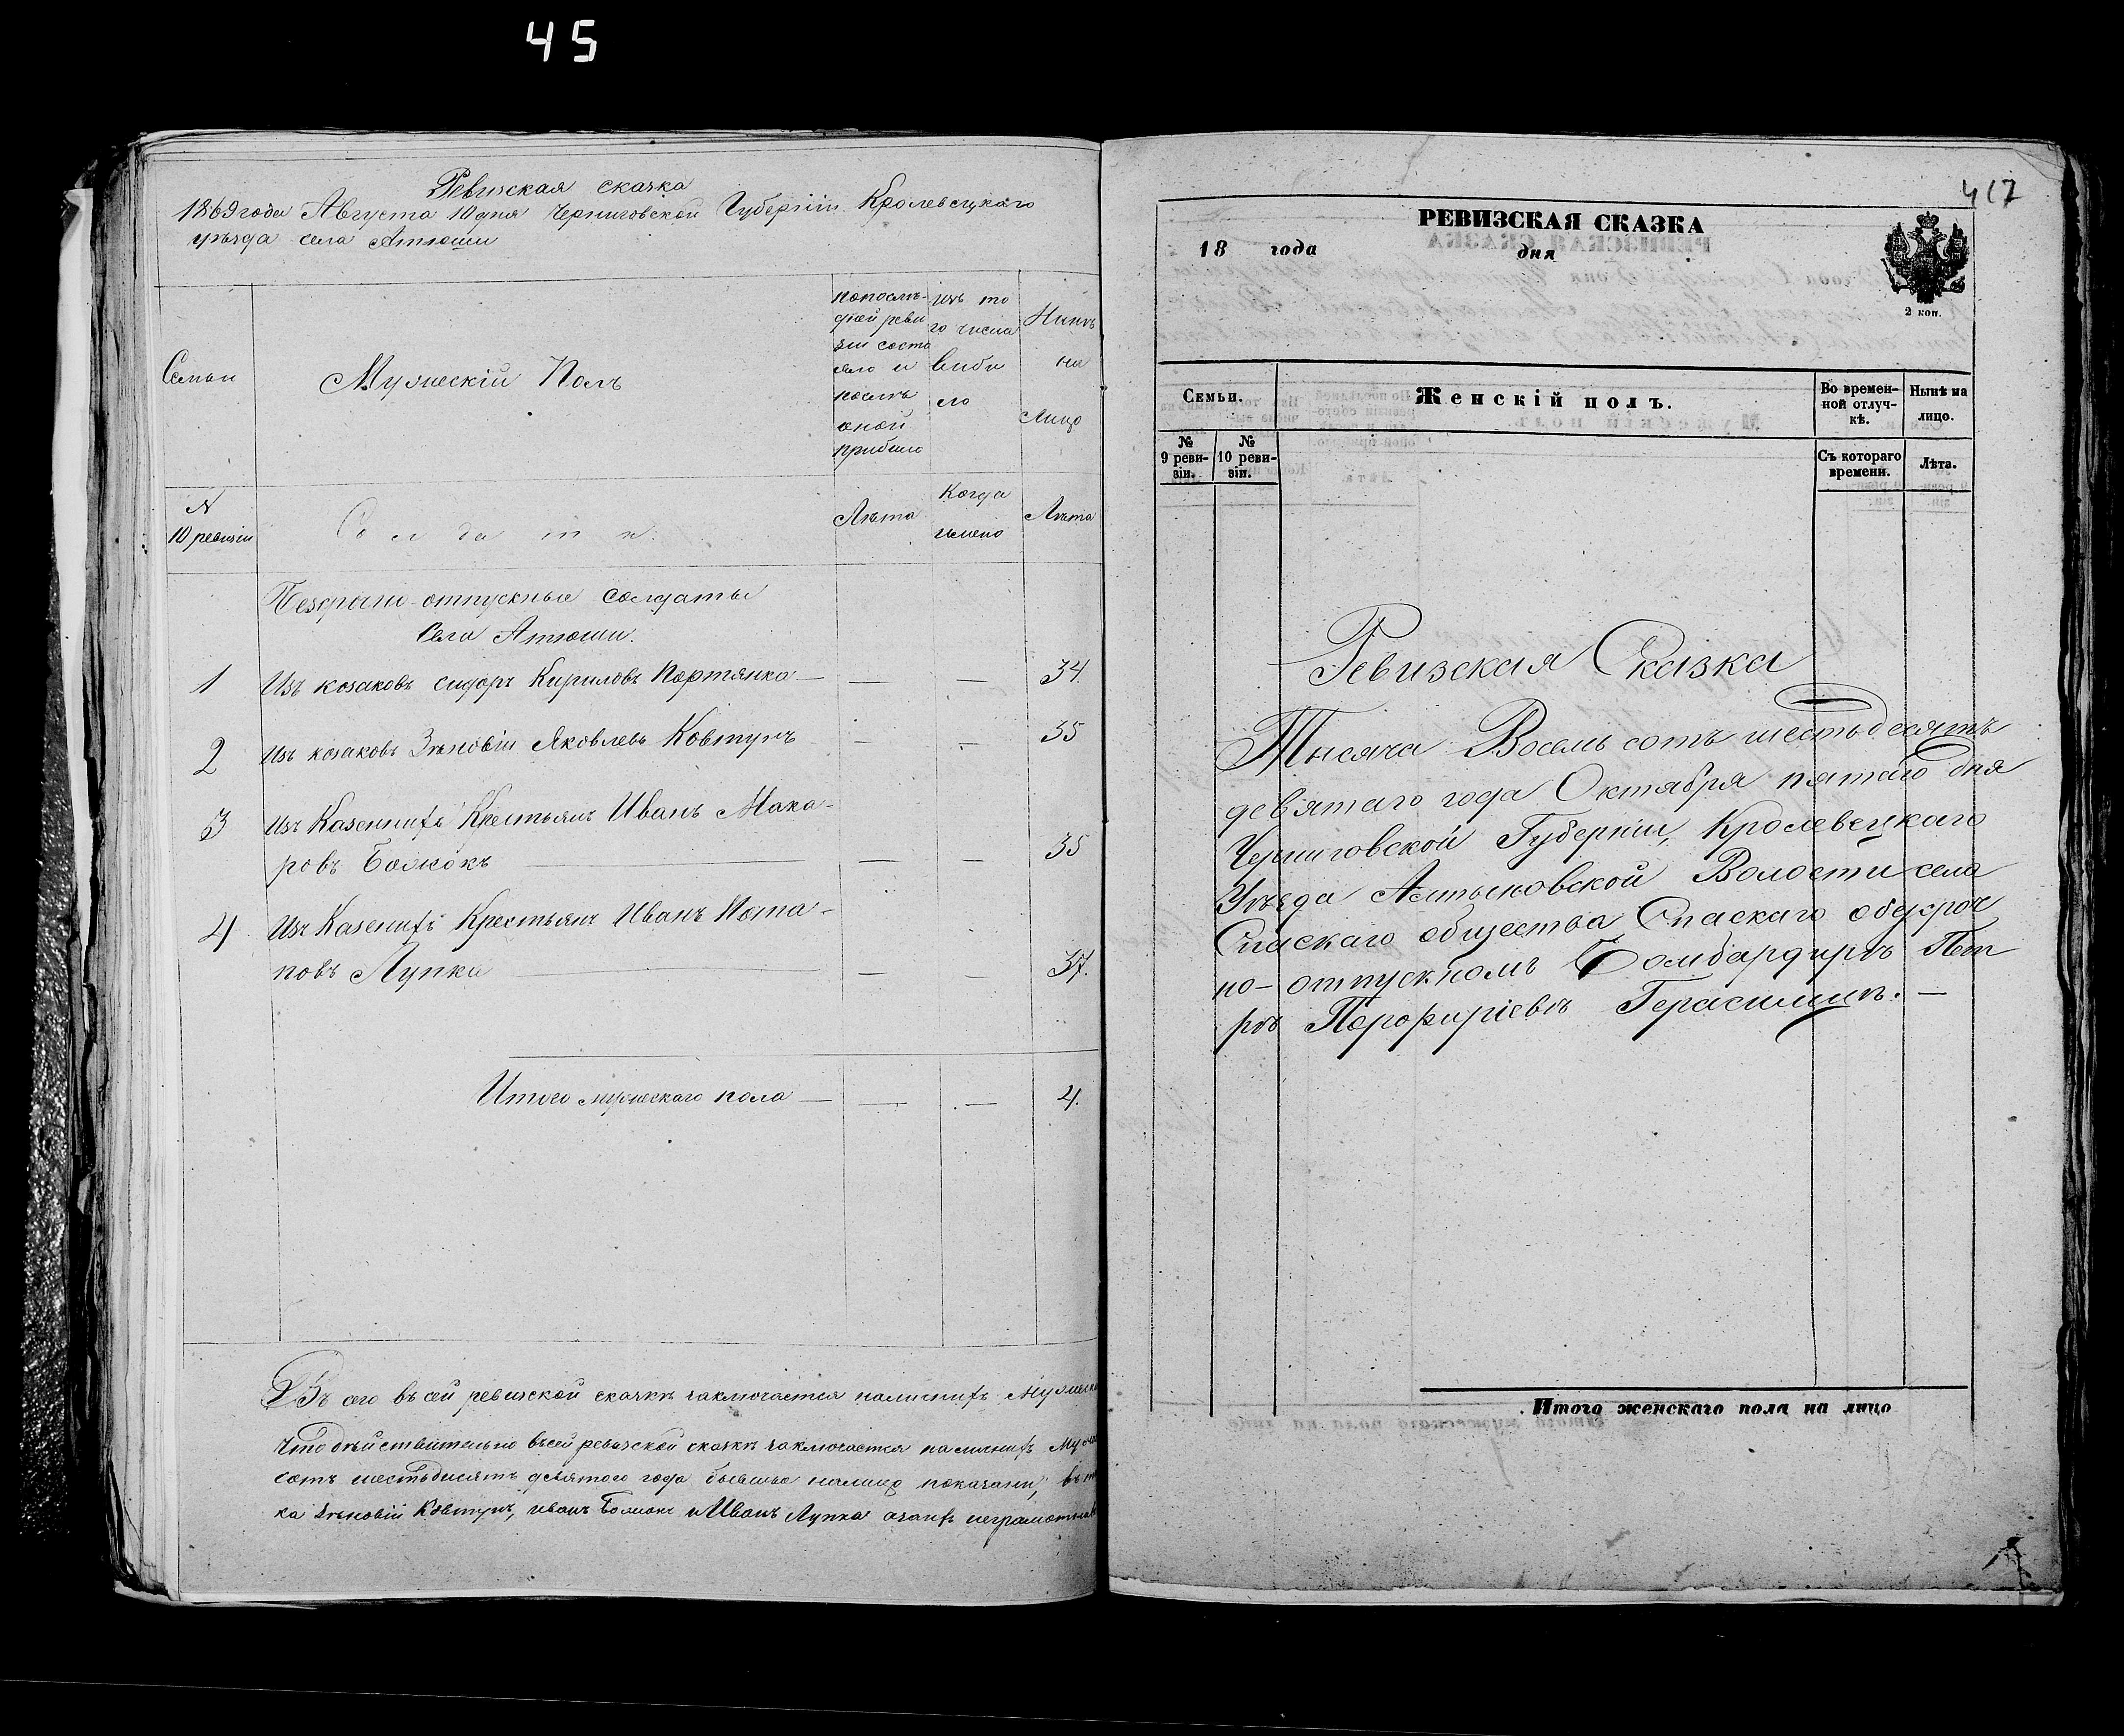 45
Ревизская сказка
1869 года Августа 10 дня Черниговской Губерніи Кролевецкаго
уѣзда села Атюши
Семьи
Мужескій Полъ
попослѣ-
дней реви
зіи состо
яло и
послѣ
оной
прибыло
изъ то
го числа
выбы
ло
Нынѣ
на
Лицо
N
10 ревизіи
Солдати.
Лѣта
Когда
имено
Лѣта
Безсрочно-отпускные Солдаты
Села Атюши.
1 Изъ козаковъ Сидоръ Кириловъ Портянка — — — 34.
2 Изъ козаковъ Зѣновіи Яковлевъ Ковтунъ — — 35
3 Изъ Казенныхъ Крестьянъ Иванъ Мака-
ровъ Божокъ — — — 35
4 Изъ Казенныхъ Крестьянъ Иванъ Пота-
повъ Лупка — — — 37.
Итого мужескаго пола — — — 4.
сего въ сей ревизской сказкѣ заключается наличныхъ
Что дѣйствительно въ сей ревизской сказкѣ заключается наличныхъ
сотъ шестьдисятъ девятого года налицо показани,
ка Зѣновіи Ковтунъ, Иванъ Божокъ и Иванъ Лупка
417
РЕВИЗСКАЯ СКАЗКА
18 года дня
2 коп.
Семьи.
Женскій полъ.
Во времен-
ной отлуч-
кѣ.
Нынѣ на
лицо.
№
9 реви-
зіи.
№
10 реви-
зіи.
Съ котораго
времени.
Лѣта.
Ревизская Сказка
Тысяча Восемь сотъ шестьдесятъ
девятаго года Октября пятаго дня
Черниговской Губерніи, Кролевецкаго
Уѣзда Алтыновской Волости села
Спаскаго общества Спаскаго обезсроч
но-отпускномъ Бомбардирѣ Пет
рѣ Порфиріевѣ Герасимцѣ. —
Итого женскаго пола на лицо